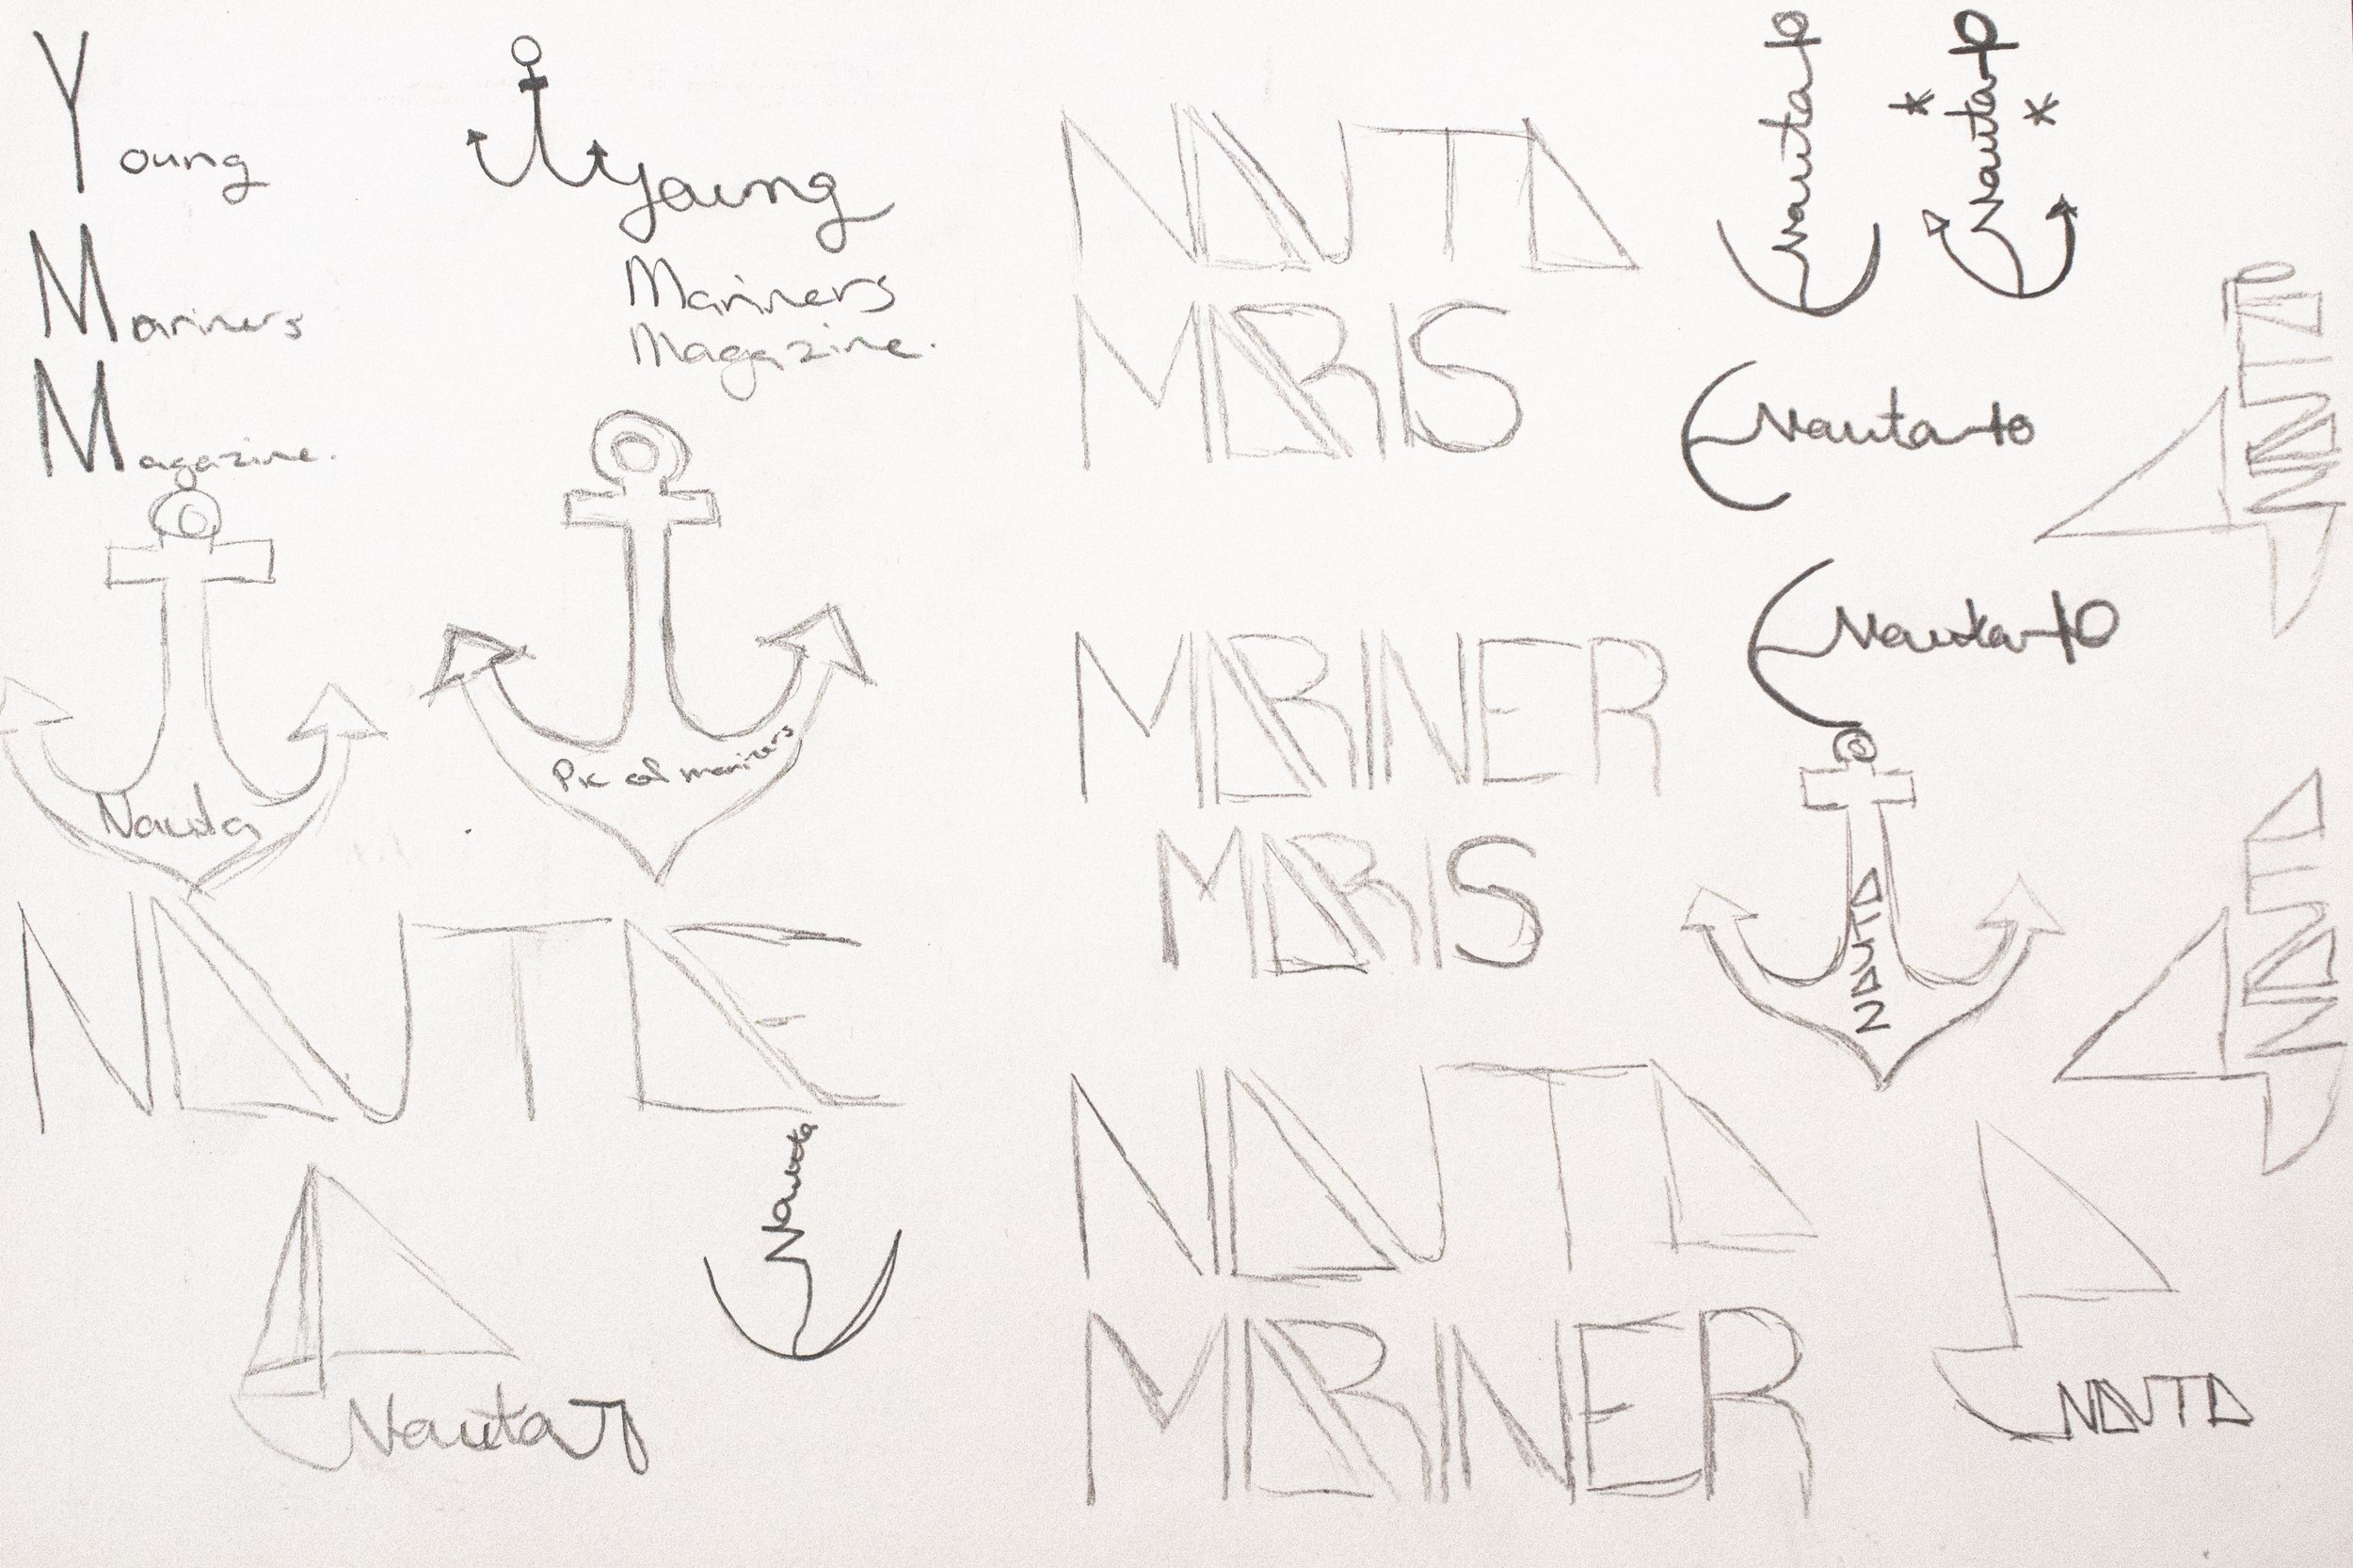 Young
Mariners
Magazine.
Young
Mariners
Magazine.
Nauta
Pic of mariners
NAUTAE
Nauta
Nauta
NAUTA
MARIS
MARINER
MARIS
NAUTA
MARINER
Nauta
Nauta
Nauta
Nauta
NAUTA
NAUTA
NAUTA
NAUTA